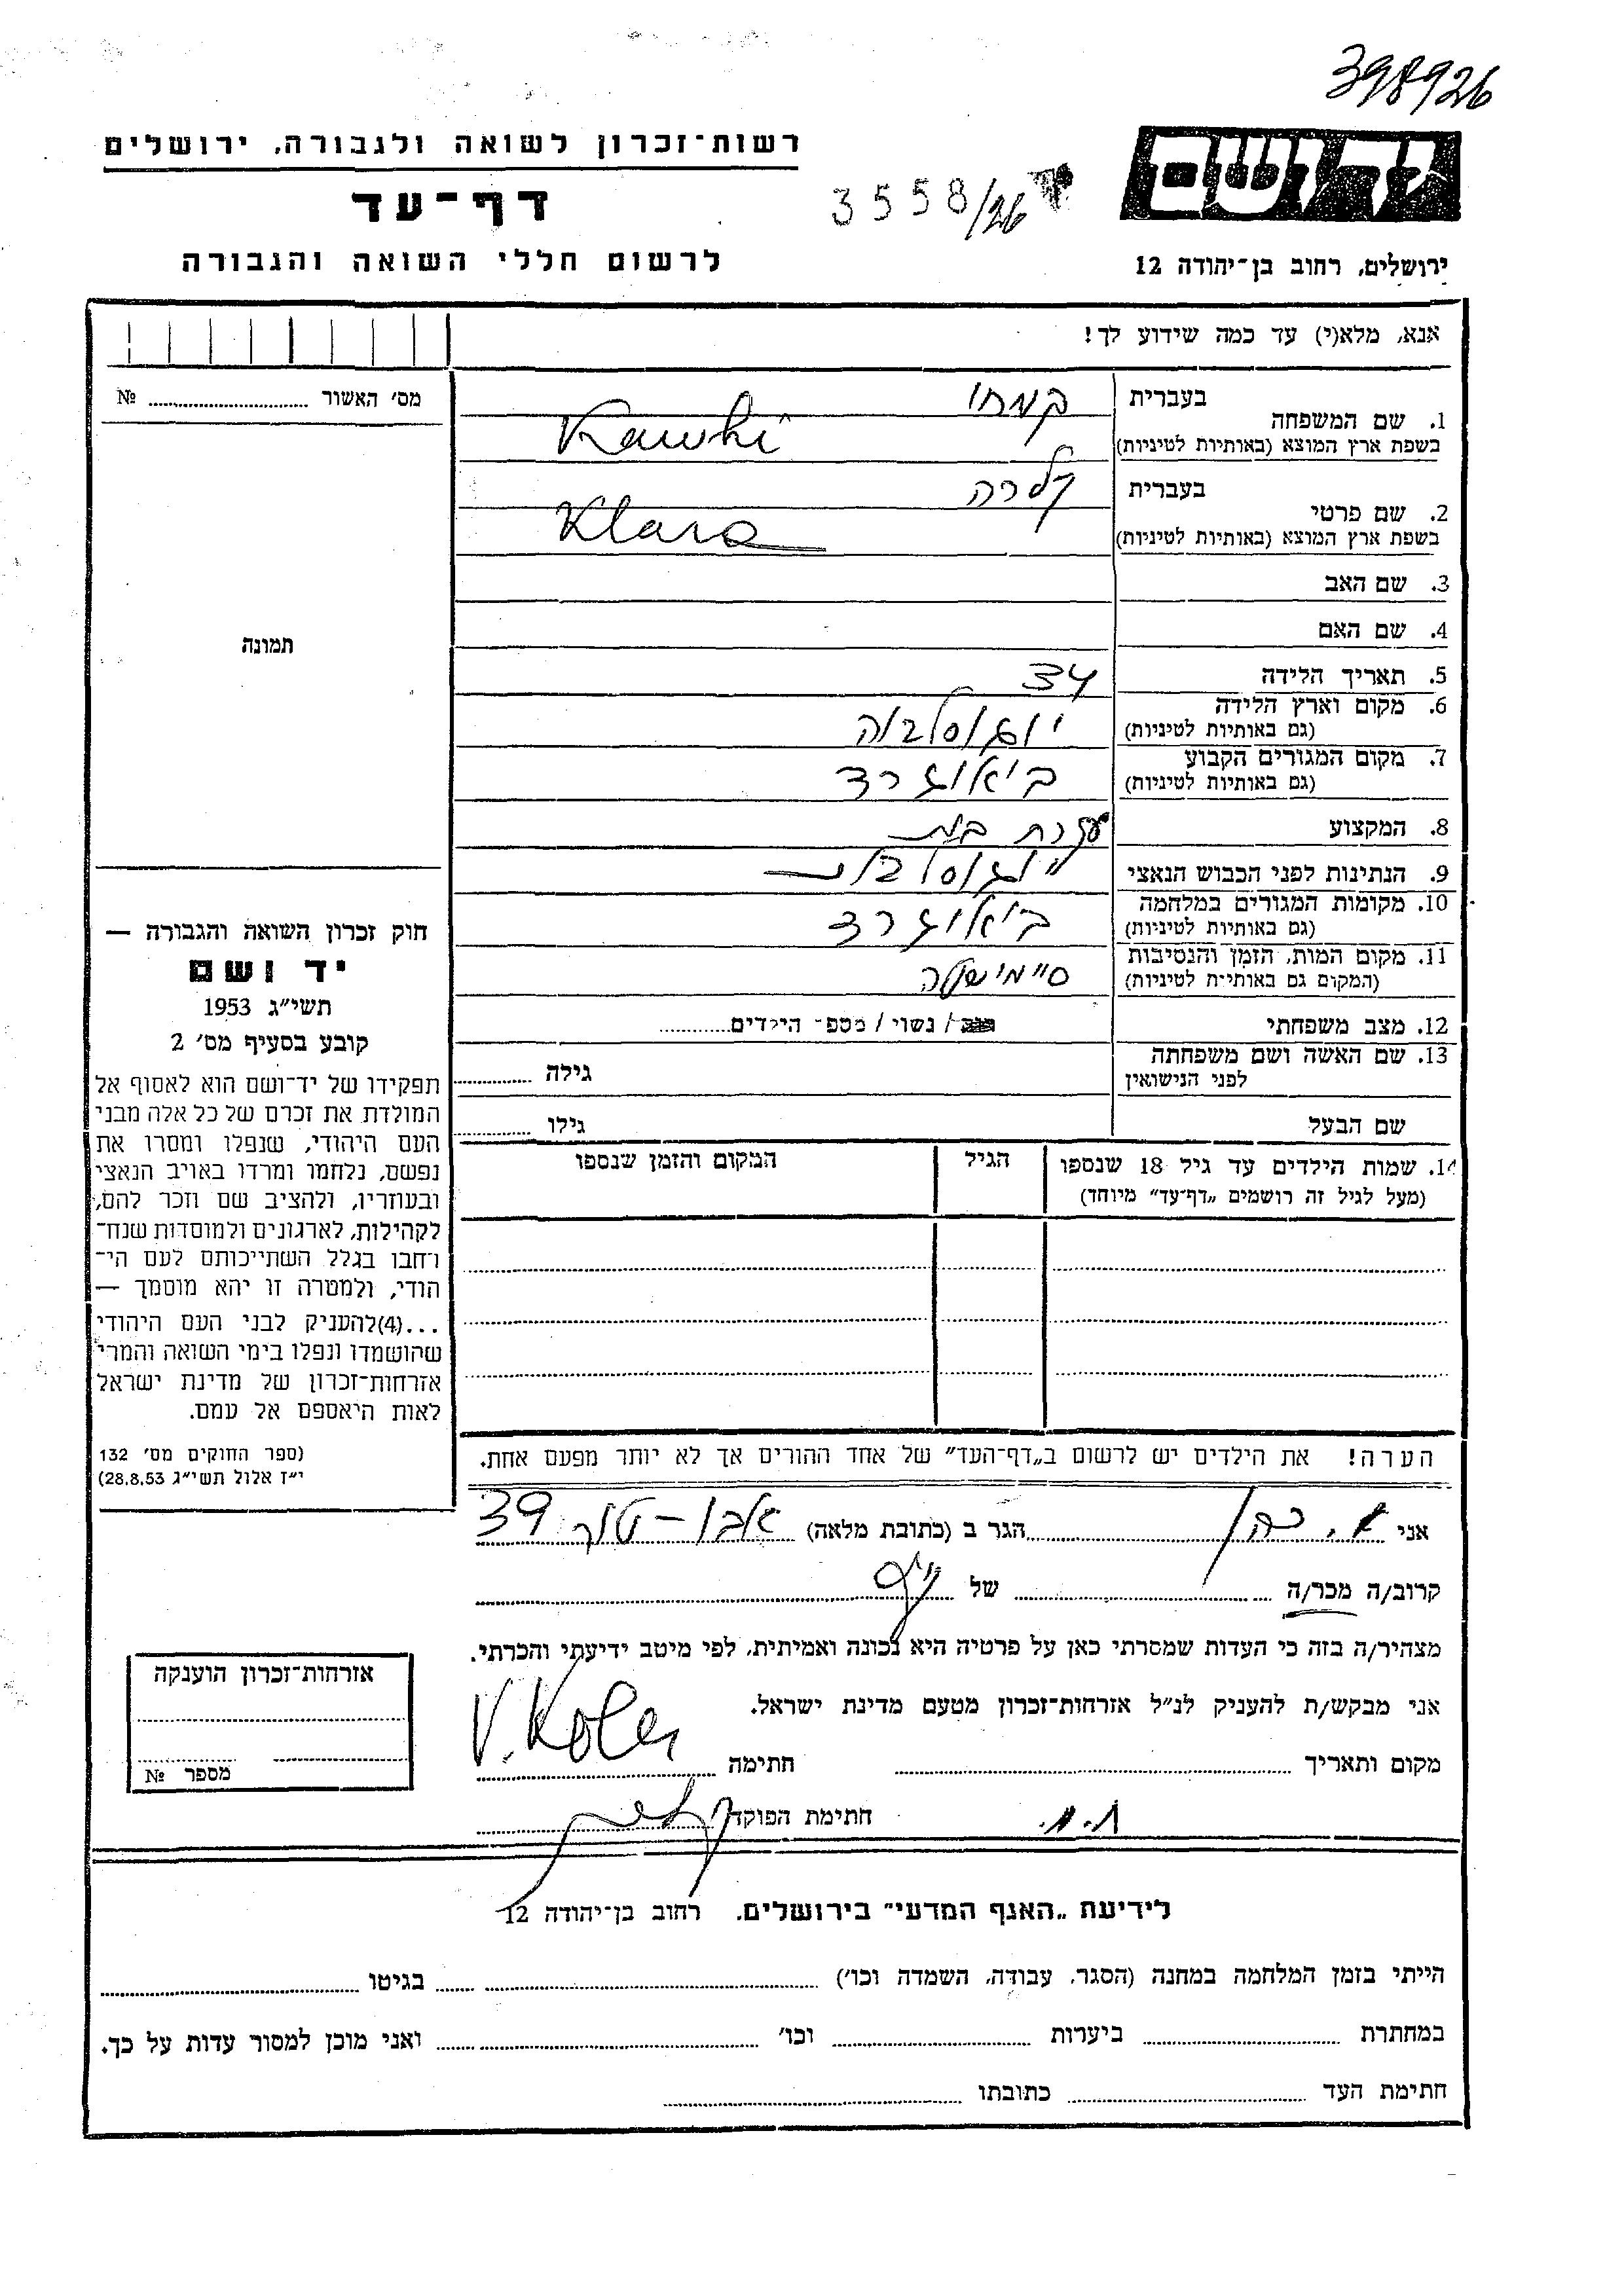 398926
רשות-זכרון לשואה ולגבורה, ירושלים
דף-עד
3558/26
לרשום חללי השואה והגבורה
יד ושם
ירושלים, רחוב בן-יהודה 12
אנא, מלא(י) עד כמה שידוע לך!
מס׳ האשור № 
1. שם המשפחה
בעברית קמחי
בשפת ארץ המוצא (באותיות לטיניות) Kamhi
2. שם פרטי
בעברית קלרה
בשפת ארץ המוצא (באותיות לטיניות) Klara
3. שם האב
4. שם האם
תמונה
5. תאריך הלידה 34
6. מקום וארץ הלידה יוגוסלביה
(גם באותיות לטיניות)
7. מקום המגורים הקבוע ביאוגרד
(גם באותיות לטיניות)
8. המקצוע עקרת בית
9. הנתינות לפני הכבוש הנאצי יוגוסלבית
10. מקומות המגורים במלחמה ביאוגרד
(גם באותיות לטיניות)
11. מקום המות, הזמן והנסיבות סיימישטה
(המקום גם באותיות לטיניות)
12. מצב משפחתי רוק / נשוי / מספ- הילדים
13. שם האשה ושם משפחתה
לפני הנישואין
גילה
שם הבעל
גילו
14. שמות הילדים עד גיל 18 שנספו
(מעל לגיל זה רושמים „דף-עד״ מיוחד)
הגיל
המקום והזמן שנספו
חוק זכרון השואה והגבורה —
יד ושם
תשי״ג 1953
קובע בסעיף מס׳ 2
תפקידו של יד-ושם הוא לאסוף אל
המולדת את זכרם של כל אלה מבני
העם היהודי, שנפלו ומסרו את
נפשם, נלחמו ומרדו באויב הנאצי
ובעוזריו, ולהציב שם וזכר להם,
לקהילות, לארגונים ולמוסדות שנח-
רחבו בגלל השתייכותם לעם הי-
הודי, ולמטרה זו יהא מוסמך —
...(4)להעניק לבני העם היהודי
שהושמדו ונפלו בימי השואה והמרי
אזרחות-זכרון של מדינת ישראל
לאות היאספם אל עמם.
(ספר החוקים מס׳ 132
י״ז אלול תשי״ג 28.8.53)
הערה! את הילדים יש לרשום ב„דף-העד״ של אחד ההורים אך לא יותר מפעם אחת.
אני א. כהן הגר ב (כתובת מלאה) אבו-טור 39
קרוב/ה מכר/ה של
מצהיר/ה בזה כי העדות שמסרתי כאן על פרטיה היא נכונה ואמיתית, לפי מיטב ידיעתי והכרתי.
אני מבקש/ת להעניק לנ״ל אזרחות-זכרון מטעם מדינת ישראל.
מקום ותאריך חתימה
חתימת הפוקד
אזרחות-זכרון הוענקה
מספר №
לידיעת „האגף המדעי״ בירושלים, רחוב בן-יהודה 12
הייתי בזמן המלחמה במחנה (הסגר, עבודה, השמדה וכו׳) בגיטו
במחתרת ביערות וכו׳ ואני מוכן למסור עדות על כך.
חתימת העד כתובתו